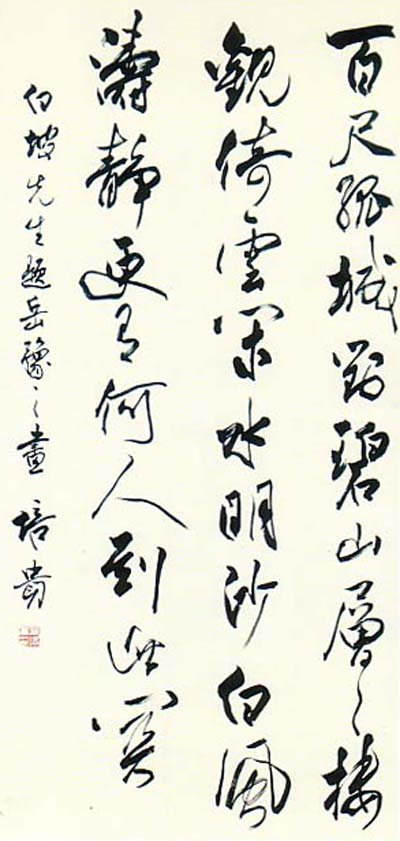 百尺孤城對碧山層々樓
觀倚雲閑水明沙白風
濤靜更有何人到此間
白坡先生題岳豫之畫 培貴